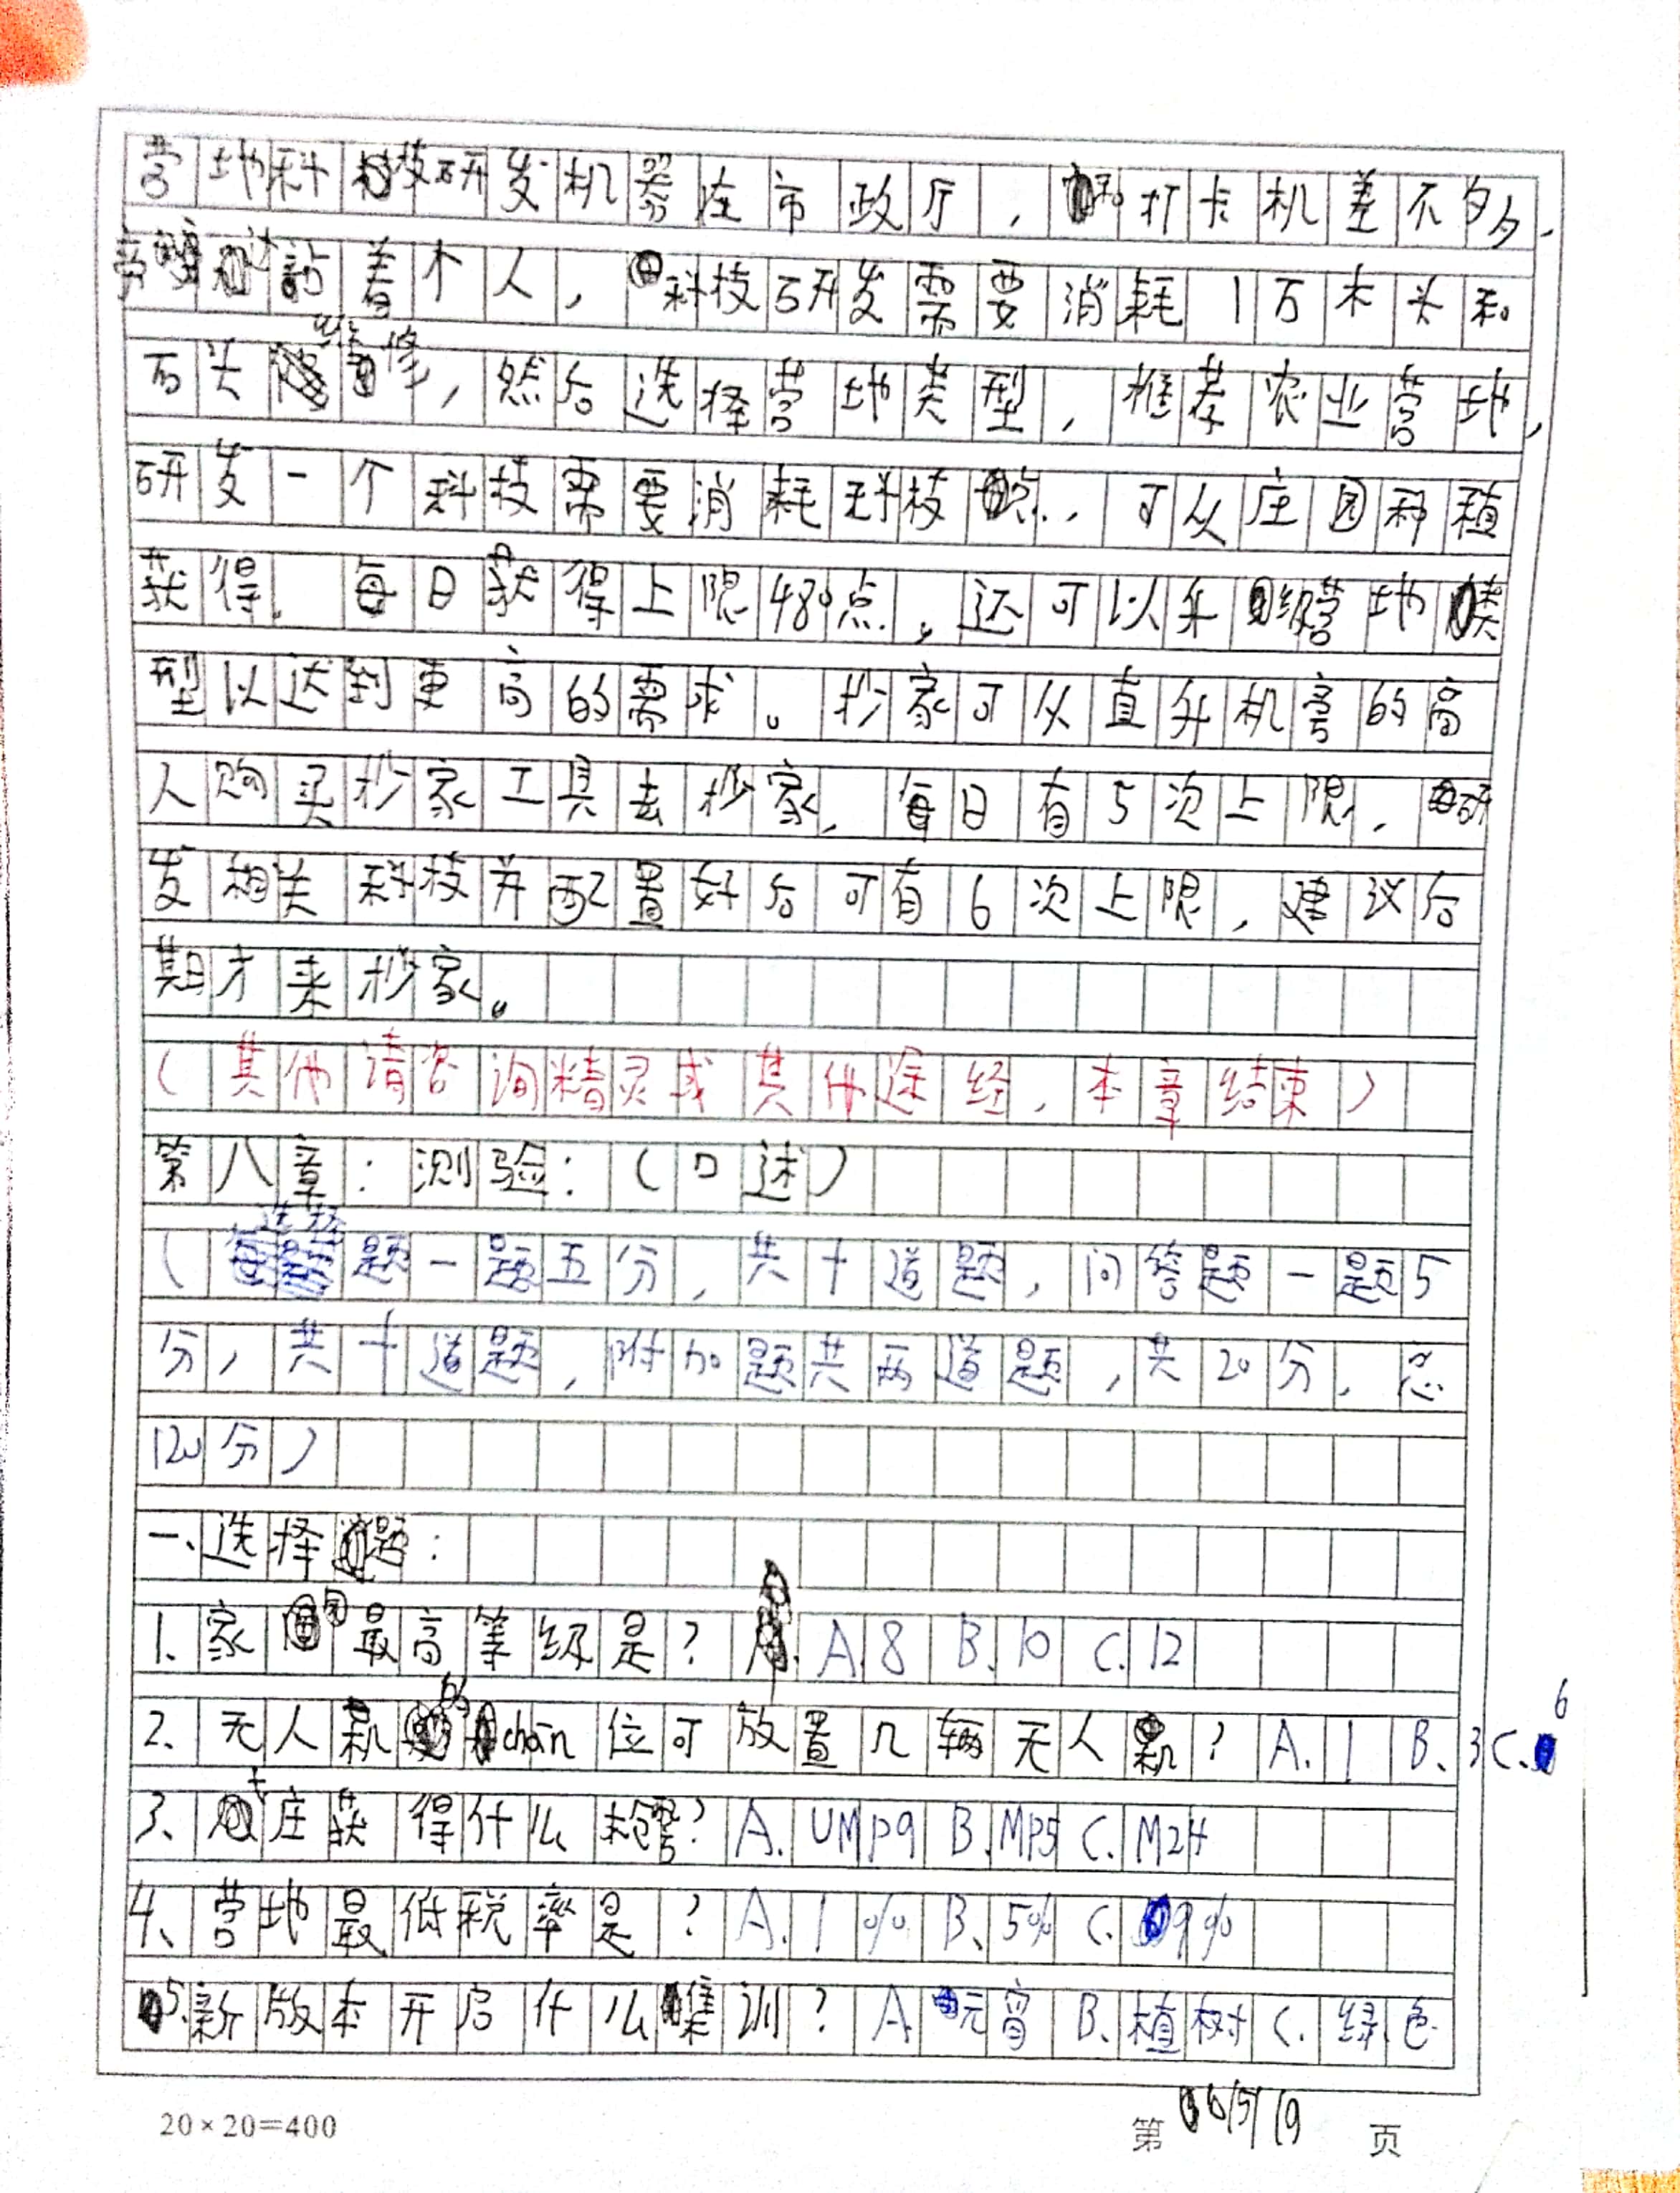 营地科技研发机器在市政厅，和打卡机差不多，
旁边站着个人，科技研发需要消耗1万木头和
石头维修，然后选择营地类型，推荐农业营地，
研发一个科技需要消耗科技点，可从庄园种植
获得。每日获得上限480点，还可以升级营地类
型以达到更高的需求。抄家可从直升机旁的商
人购买抄家工具去抄家，每日有5次上限，研
发相关科技并配置好后可有6次上限，建议后
期才来抄家。
（其他请咨询精灵或其他途经，本章结束）
第八章：测验：（口述）
（选择题一题五分，共十道题，问答题一题5
分，共十道题，附加题共两道题，共20分，总
120分）
一、选择题：
1、家园最高等级是？A.8 B.10 C.12
2、无人机的chān位可放置几辆无人机？A.1 B、3 C.6
3、庄获得什么枪？A.UMP9 B.MP5 C.M24
4、营地最低税率是？A.1% B、5% C.9%
5.新版本开启什么集训？A元宵 B、植树 C.绿色
20×20=400
第 6/5/19 页